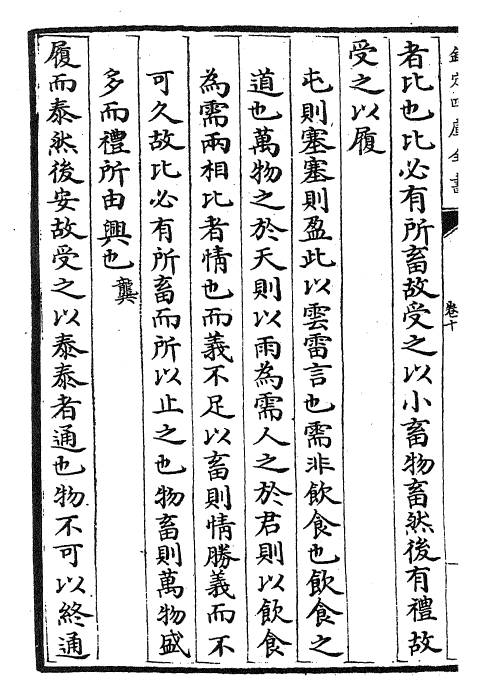 欽定四庫全書
卷十
者比也比必有所畜故受之以小畜物畜然後有禮故
受之以履
屯則塞塞則盈此以雲雷言也需非飲食也飲食之
道也萬物之於天則以雨為需人之於君則以飲食
為需兩相比者情也而義不足以畜則情勝義而不
可久故比必有所畜而所以止之也物畜則萬物盛
多而禮所由興也龔
履而泰然後安故受之以泰泰者通也物不可以終通